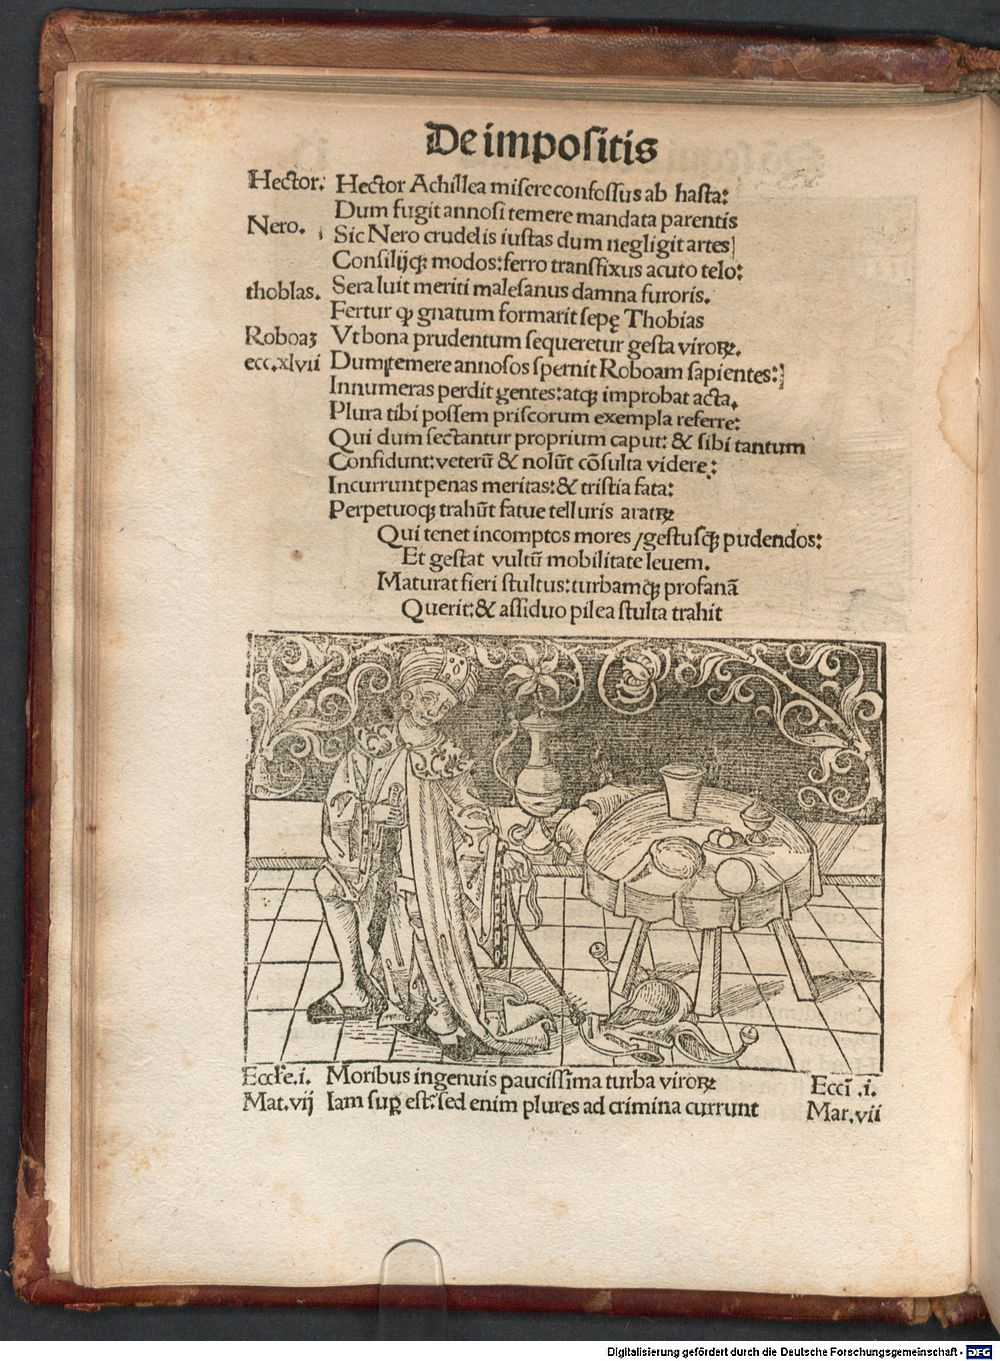 De impositis
Hector: Hector Achillea misere confossus ab hasta:
Dum fugit annosi temere mandata parentis
Nero. Sic Nero crudelis iustas dum negligit artes
Consilijqꝫ modos: ferro transfixus acuto telo:
thobias. Sera luit meriti malesanus damna furoris.
Fertur ꝙ gnatum formarit sepę Thobias
Roboaꝫ Vt bona prudentum sequeretur gesta viroꝝ.
ecc.xlvii Dum temere annosos spernit Roboam sapientes:
Innumeras perdit gentes: atqꝫ improbat acta.
Plura tibi possem priscorum exempla referre:
Qui dum sectantur proprium caput: & sibi tantum
Confidunt: veterū & nolūt cōsulta videre:
Incurrunt penas meritas: & tristia fata:
Perpetuoqꝫ trahūt fatue telluris aratꝝ
Qui tenet incomptos mores / gestusqꝫ pudendos:
Et gestat vultū mobilitate leuem.
Maturat fieri stultus: turbamqꝫ profanā
Querit: & assiduo pilea stulta trahit
Eccl'e.i. Moribus ingenuis paucissima turba viroꝝ Eccī .i.
Mat.vij Iam suꝑ est: sed enim plures ad crimina currunt Mar.vii
Digitalisierung gefördert durch die Deutsche Forschungsgemeinschaft - DFG